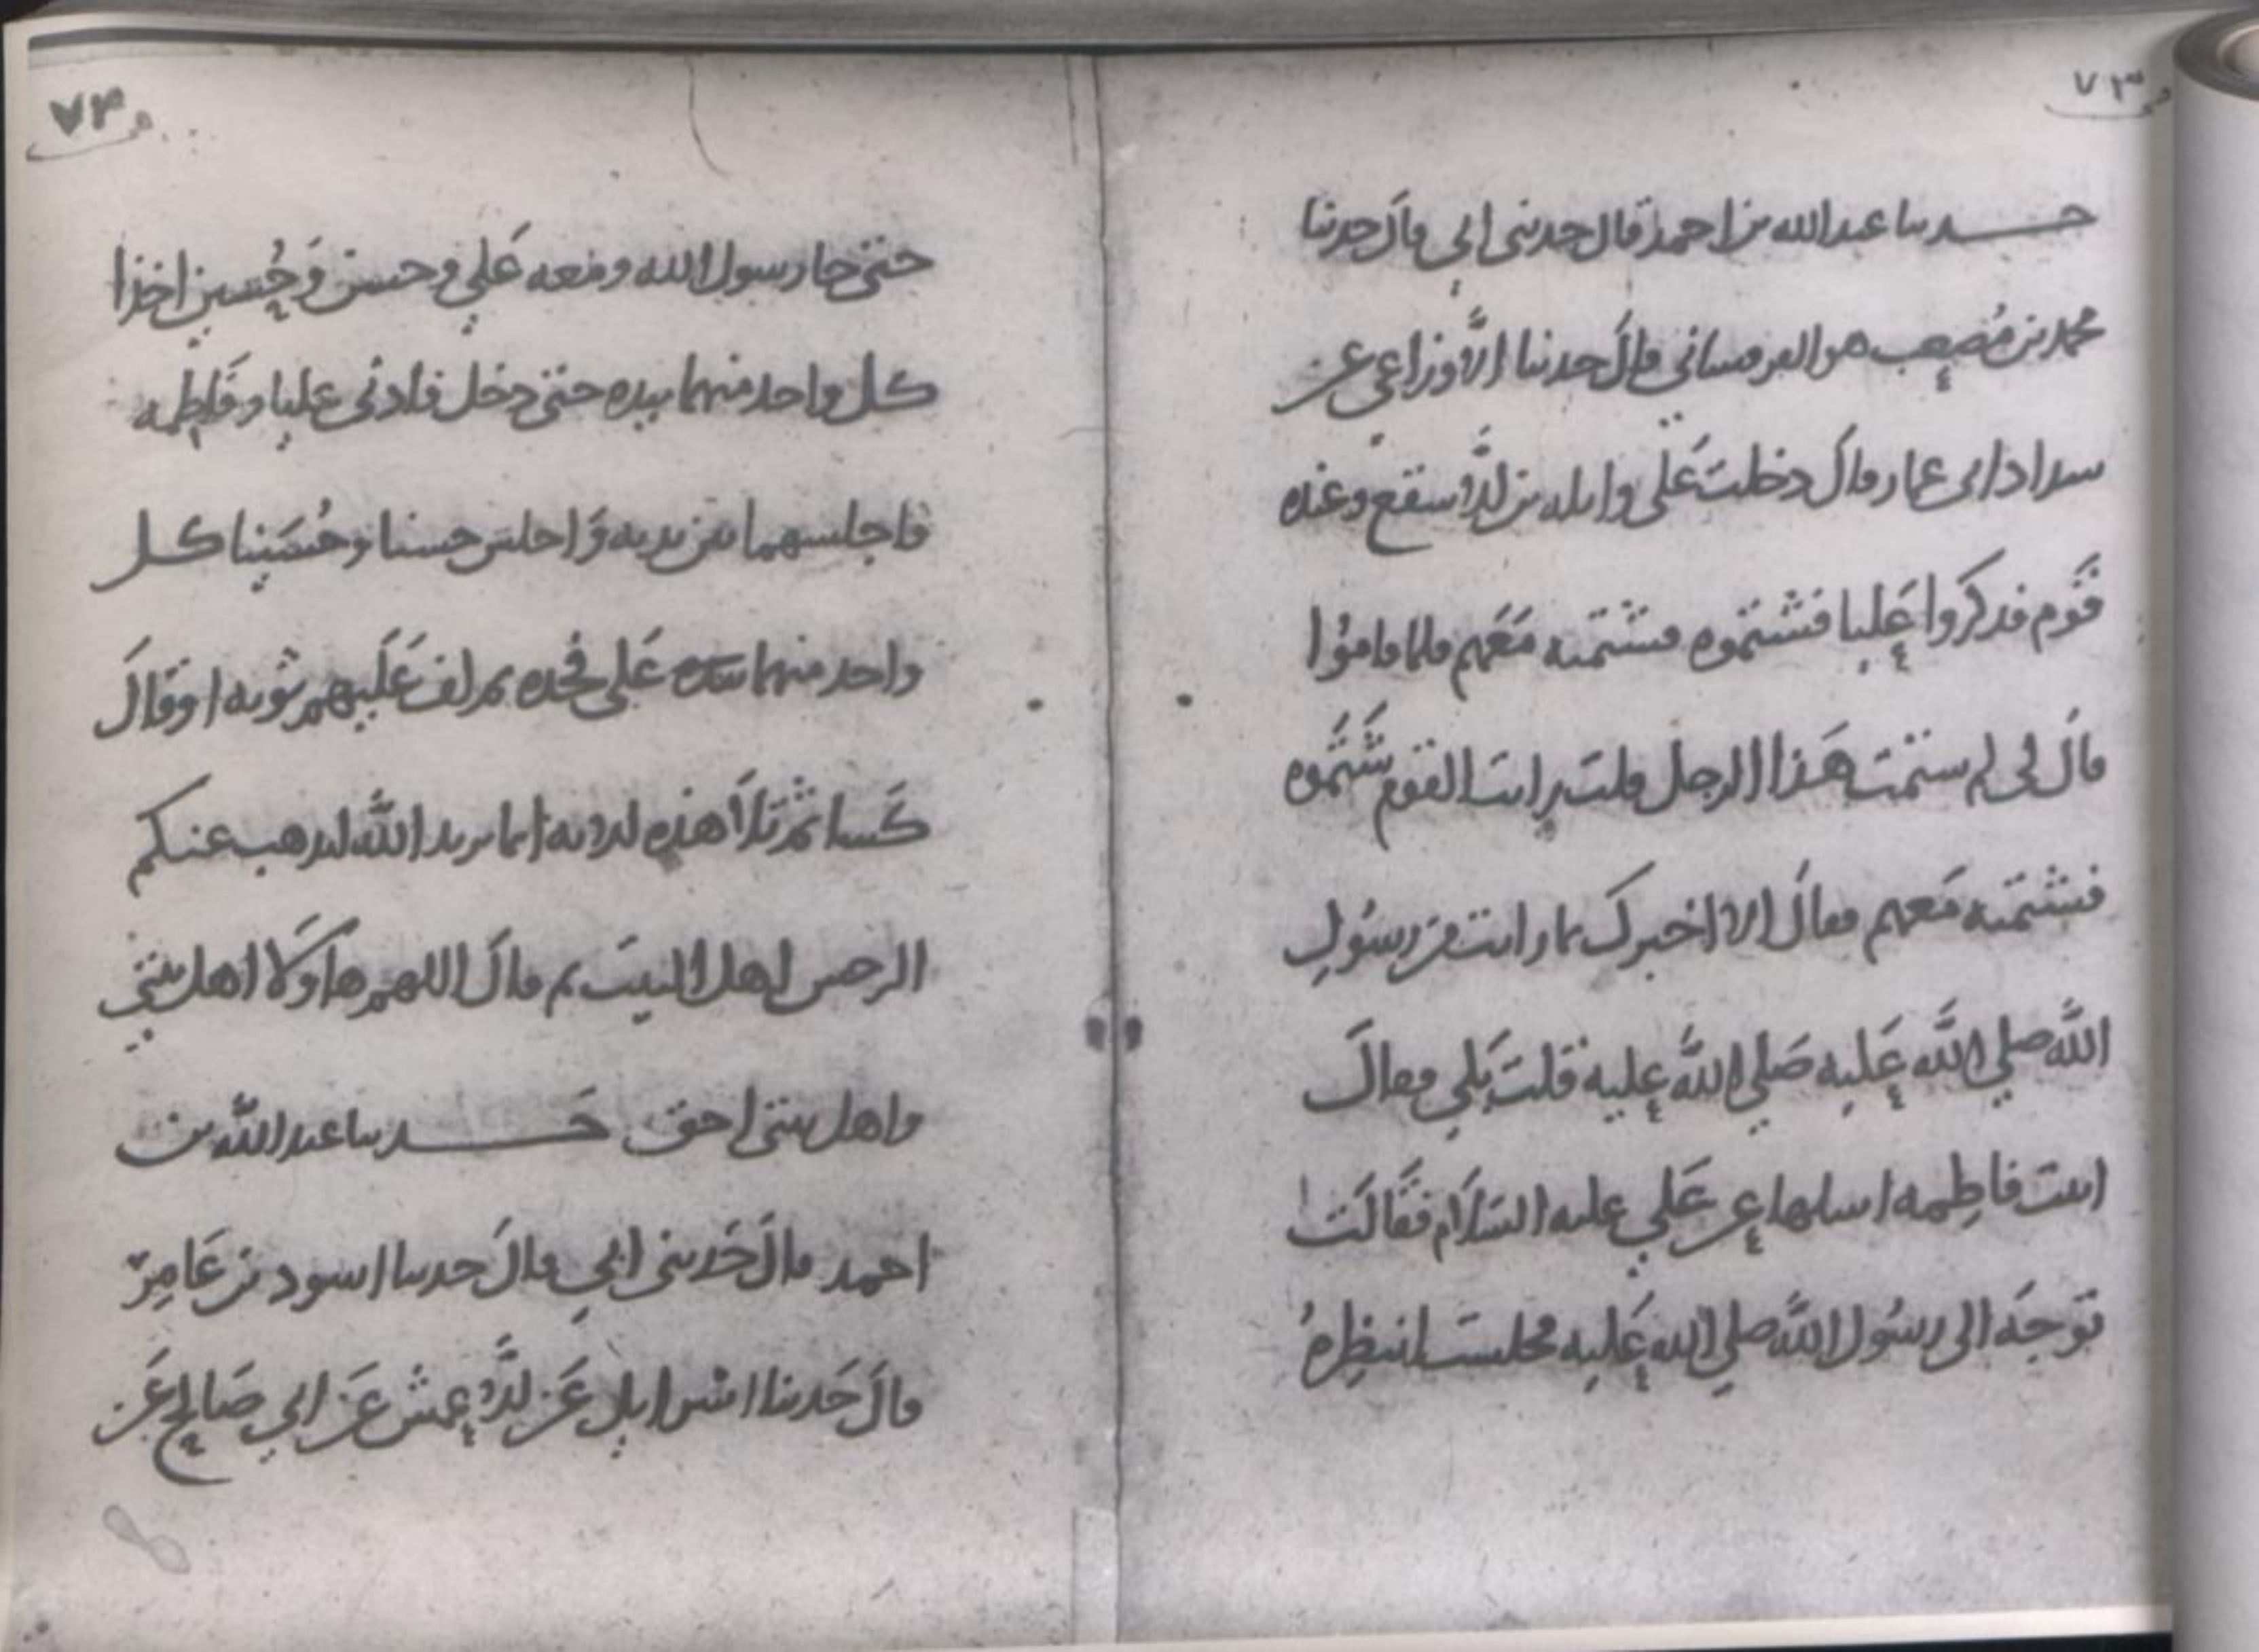 ص ٧٣
حدثنا عبد الله بن احمد قال حدثنى ابي قال حدثنا
محمد بن مُصعب هو القرقساني قال حدثنا الأوزاعي عن
شداد ابى عمار قال دخلت عَلى واثله بن الأسقع وعنده
قَوم فذكروا عَليا فشتموه فشتمته مَعَهم فلما قاموُا
قال لى لم شتمت هَذا الرجل قلت رايت القوم شَتَموه
فشتمته مَعهم فقال الا اخبرك بما رايت من رسوُلِ
الله صلي الله عَليه صَلي الله عليه قلت بَلي فقال
اتيت فاطِمه اسلها عن عَلي عليه السَلَام فقَالَت
توجه الى رسُول الله صلي الله عَليه فجلست انتظِرهُ
ص ٧٤
حتى جا رسول الله ومعه عَلي وحسن وَحُسين اخذا
كل واحد منهما بيده حتى دخل فادنى عليا وفَاطِمه
فاجلسهما بين يديه وَاجلس حسنا وحُسَينا كل
واحد منهما عَلى فخده ثم لف عَلَيهم ثوبه او قال
كَسا ثم تلَا هذه الايه انما يريد الله ليذهب عنكم
الرجس اهل البيت ثم قال اللهم هَاوَلا اهل بيتي
واهل بيتى احق حَدثنا عبد الله بن
احمد قال حَدثنى ابي قال حدثنا اسود بن عَامِر
قال حَدثنا اسرايل عَن الأعمش عَن ابي صَالِح عَن